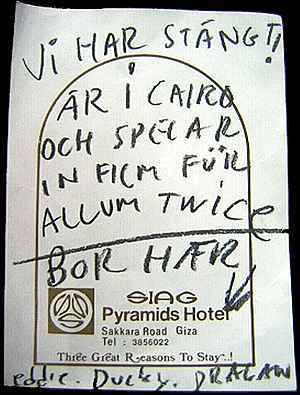 VI HAR STÄNGT!
ÄR I CAIRO
OCH SPELAR
IN FILM FÜR
ALLUM TWICE
BOR HÆR
SIAG
Pyramids Hotel
Sakkara Road Giza
Tel : 3856022
Three Great Reasons To Stay..!
eddie. Ducky. DRAGAN